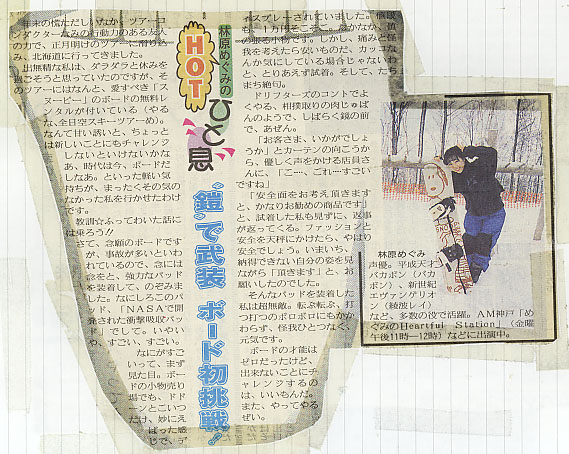 林原めぐみの
HOT
ひと息
“鎧”で武装 ボード初挑戦!
年末の慌ただしいなか、ツアーコ
ンダクターなみの行動力のある友人
の力で、正月明けのツアーに滑り込
み、北海道に行ってきました。
出無精な私は、ダラダラと休みを
過ごそうと思っていたのですが、そ
のツアーにはなんと、愛すべき「ス
ヌーピー」のボードの無料レ
ンタルが付いている(やる
な、全日空スキーツアーめ)。
なんて甘い誘いと、ちょっと
は新しいことにもチャレンジ
しないといけないかな
あ、時代は今、ボードだ
しなあ。といった軽い気
持ちが、まったくその気の
なかった私を行かせたわけ
です。
教訓☆ふってわいた話に
は乗ろう!!
さて、念願のボードです
が、事故が多いといわ
れているので、念には
念をと、強力なパッド
を装着して、のぞみま
した。なにしろこのパ
ッド、「NASAで開
発された衝撃吸収パッ
ド」でして。いやい
や、すごい、すごい。
なにがすご
いって、まず
見た目。ボー
ドの小物売り
場でも、ドド
ーンとこいつ
だけ、妙にえ
ばった感
じで、デ
ィスプレーされていました。
も、1万円そこそこ
しかし、痛みと怪
我を考えたら安いものだ、カッコな
んか気にしている場合じゃないわ
と、とりあえず試着。そして、たち
まち絶句。
ドリフターズのコントでよ
くやる、相撲取りの肉じゅば
んのようで、しばらく鏡の前
で、あぜん。
「お客さま、いかがでしょ
うか」とカーテンの向こうか
ら、優しく声をかける店員さ
んに、「こ…、これ…すごい
ですね」
「安全面をお考え頂きます
と、かなりお勧めの商品です」
と、試着した私も見ずに、返事
が返ってくる。ファッションと
安全を天秤にかけたら、やはり
安全でしょう。いまいち、
納得できない自分の姿を見
ながら「頂きます」と、お
願いしたのでした。
そんなパッドを装着した
私は超無敵。転ぶ転ぶ、打
つ打つのボロボロにもかか
わらず、怪我ひとつなく、
元気です。
ボードの才能は
ゼロだったけど、
出来ないことにチ
ャレンジするの
は、いいもんだ。
また、やってやる
ぜい。
林原めぐみ
声優。平成天才
バカボン(バカ
ボン)、新世紀
エヴァンゲリオ
ン(綾波レイ)
など、多数の役で活躍。AM神戸「め
ぐみのHeartful Station」(金曜
午後11時―12時)などに出演中。